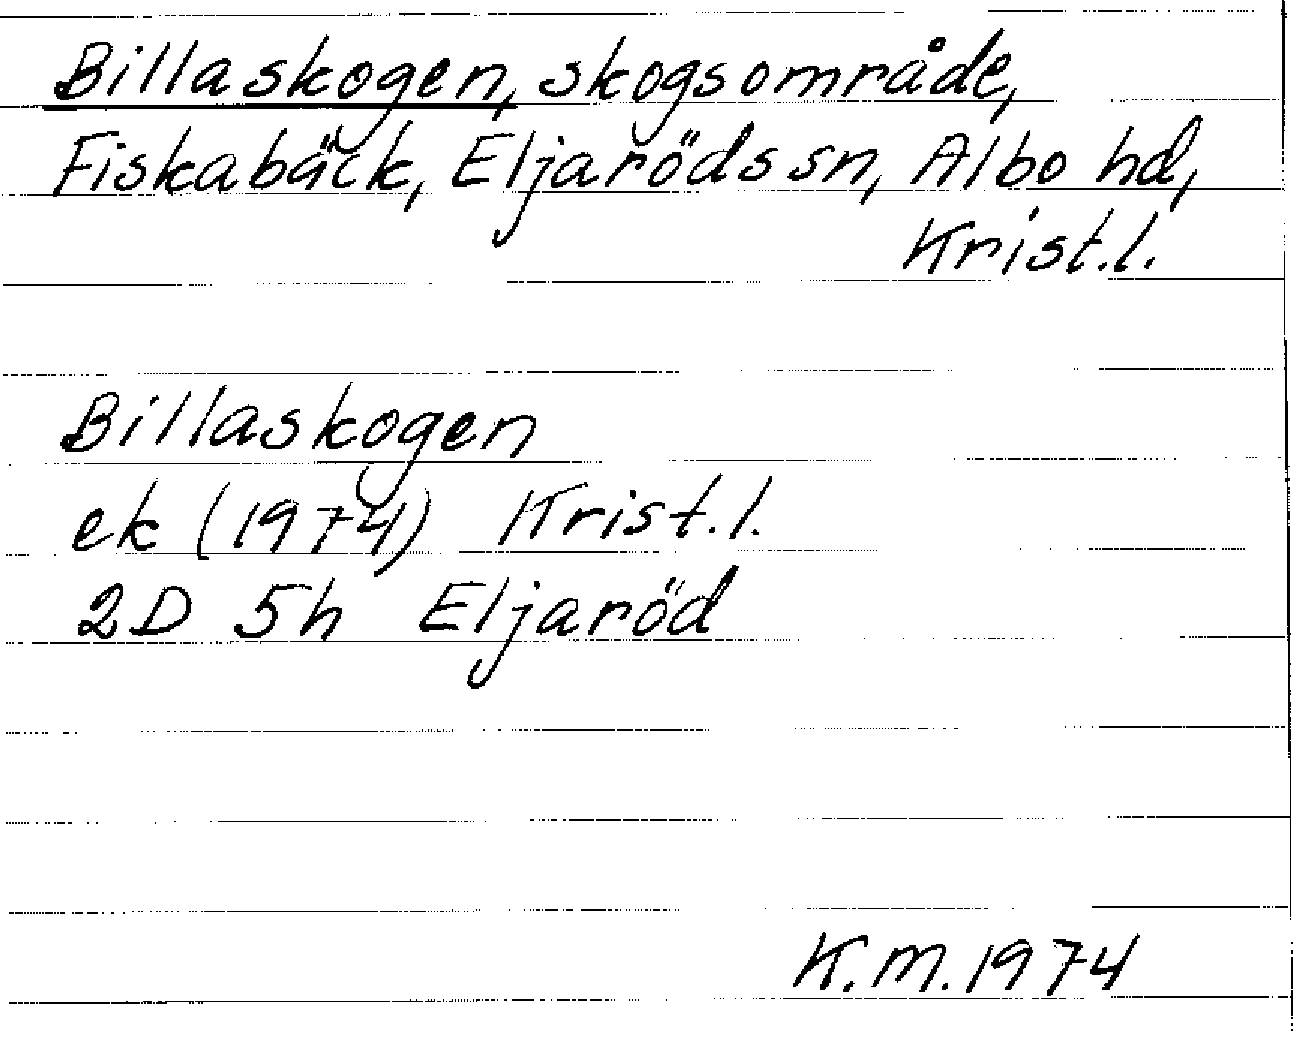 Billaskogen, skogsområde,
Fiskabäck, Eljaröds sn, Albo hd,
Krist.l.
Billaskogen
ek (1974) Krist.l.
2D 5h Eljaröd
K.M. 1974